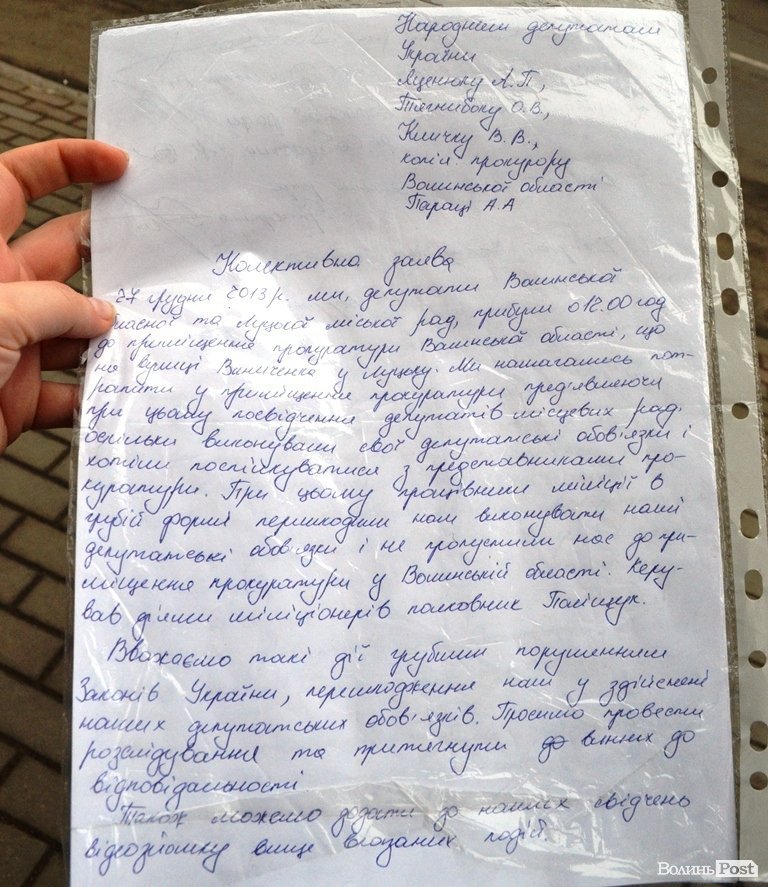 Народним депутатам
України
Яценюку А.П.,
Тягнибоку О.В.,
Кличку В.В.,
копія прокурору
Волинської області
Параці А.А
Колективна заява
27 грудня 2013 р. ми, депутати Волинської
обласної та Луцької міської рад, прибули о 12.00 год
до приміщення прокуратури Волинської області, що
на вулиці Винниченка у Луцьку. Ми намагались пот-
рапити у приміщення прокуратури пред'являючи
при цьому посвідчення депутатів місцевих рад,
оскільки виконували свої депутатські обов'язки і
хотіли поспілкуватися з представниками про-
куратури. При цьому працівники міліції в
грубій формі перешкодили нам виконувати наші
депутатські обов'язки і не пропустили нас до при-
міщення прокуратури у Волинській області. Керу-
вав діями міліціонерів полковник Поліщук.
Вважаємо такі дії грубими порушенням
Законів України, перешкодження нам у здійснені
наших депутатських обов'язків. Просимо провести
розслідування та притягнути до винних до
відповідальності
Також можемо додати до наших свідчень
відеозйомку вище вказаних подій.
Волинь Post